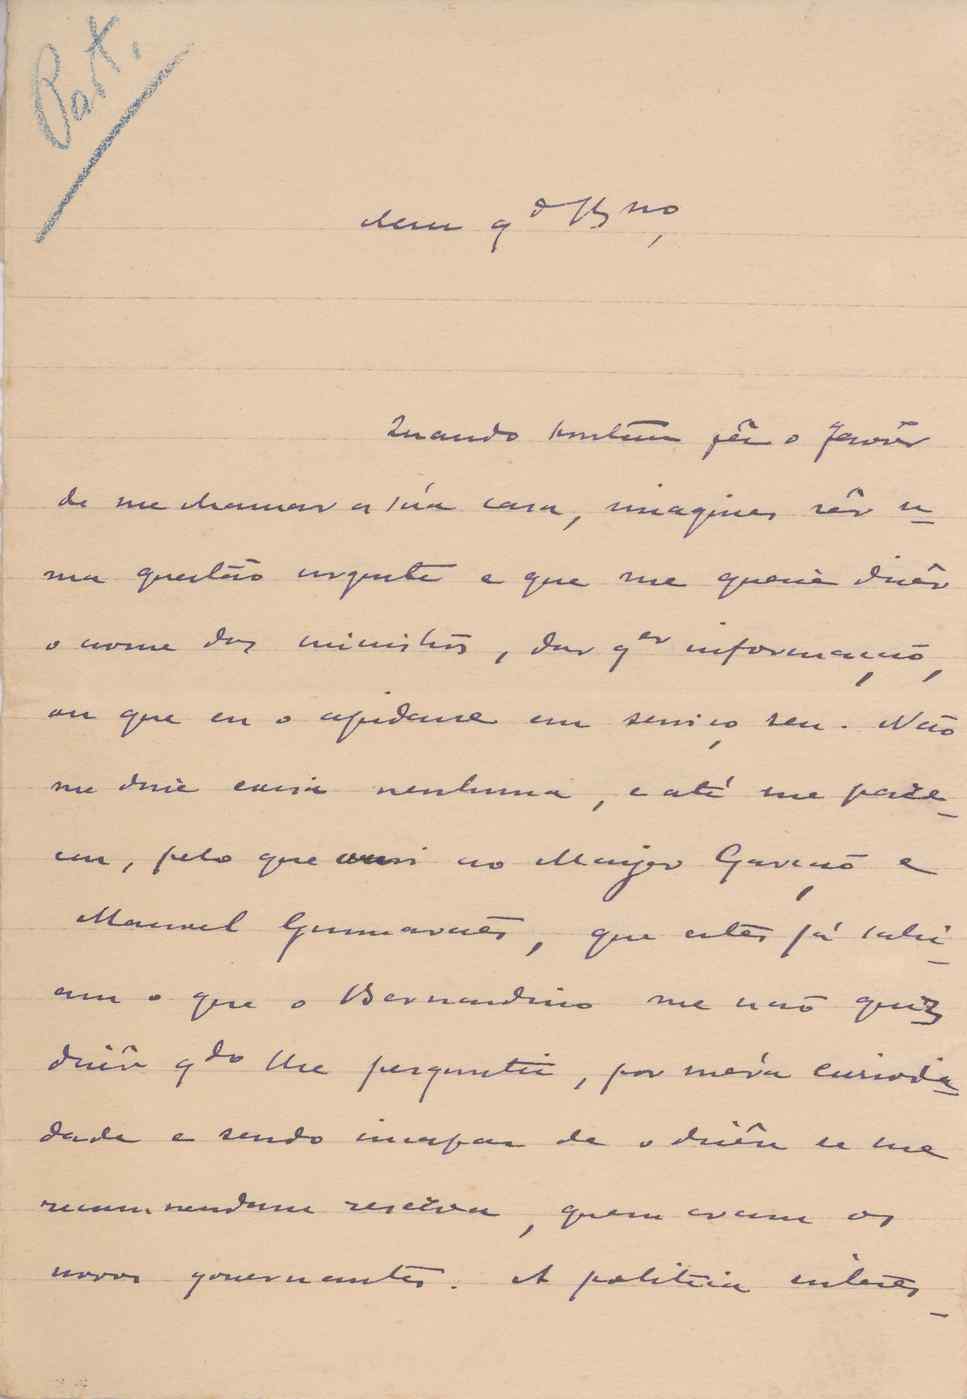 Part.
Meu q.do B.no,
Quando hontem fêz o favôr
de me chamar a súa casa, imaginei sêr u-
ma questão urgente e que me queria dizêr
o nome dos ministros, dar q.er informação,
ou que eu o ajudasse em serviço seu. Não
me disse coisa nenhuma, e até me parce-
eu, pelo que ouvi ao Mayer Garção e
Manuel Guimarães, que estes já sabi-
am o que o Bernardino me não quiz
dizêr q.do lhe perguntei, por méra curiosida-
dade e sendo incapaz de o dizêr se me
recommendasse reserva, quem eram os
novos governantes. A politica interes-